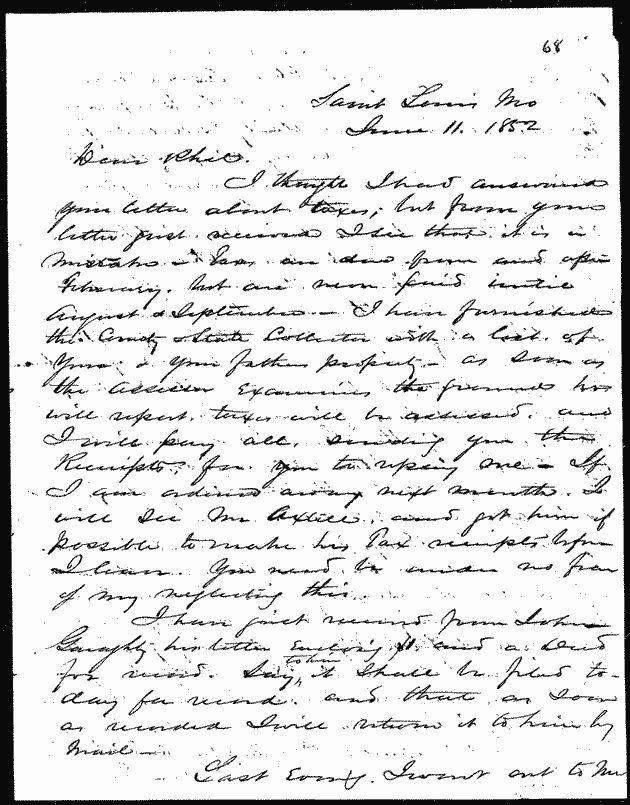 68
Saint Louis Mo
June 11. 1852
Dear Phil.
I thought I had answered
your letter about taxes; but from your
letter just received I see that it is a
mistake - Taxes are due from and after
February. but are never paid until
August & September - I have furnished
the County & State Collector with a list of
Yours & your fathers property - as soon as
the assessor Examines the grounds he
will report. taxes will be assessed. and
I will pay all. sending you the
Receipts, for you to repay me - If
I am ordered away next month. I
will see Mr and get him if
possible to make his Tax receipts before
I leave. You need be under no fear
of my neglecting this.
I have just received from John
his letter Enclosing and a Deed
for record. Say to him, it shall be filed to
day for record. and that as soon
as recorded I will return it to him by
Mail -
Last Evening. I went out to Mr